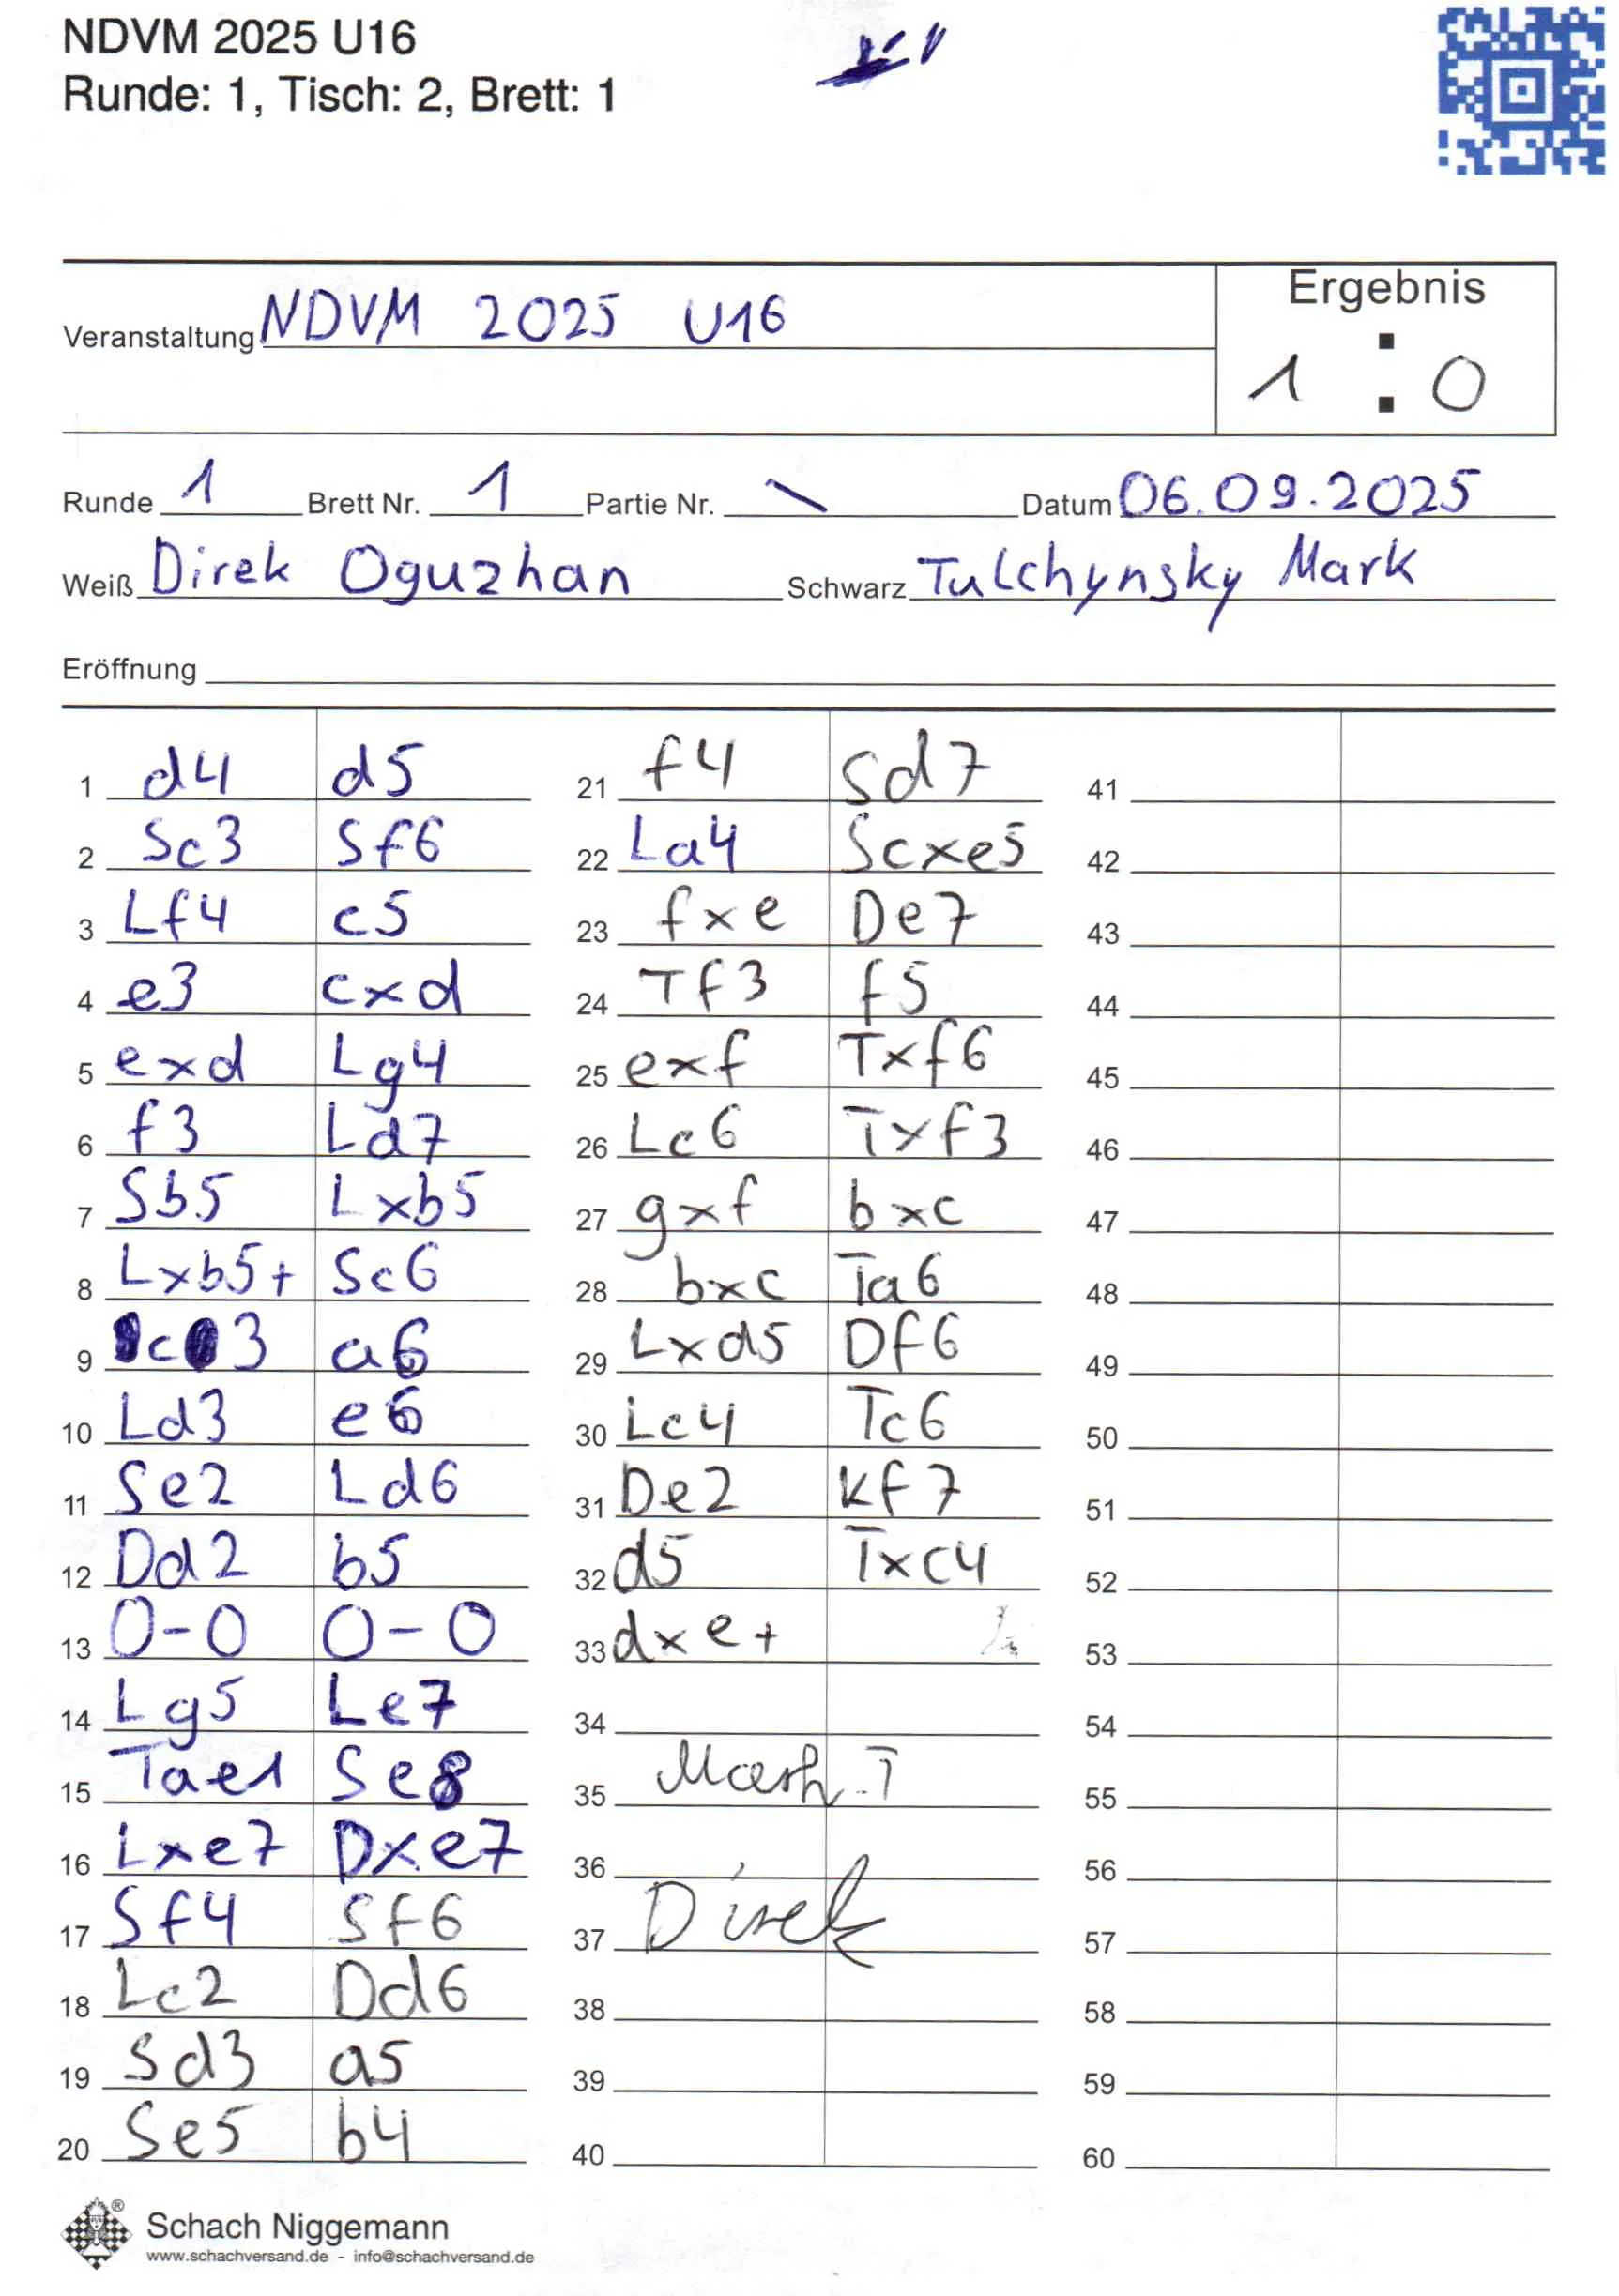 NDVM 2025 U16
Runde: 1, Tisch: 2, Brett: 1
Ergebnis
Veranstaltung NDVM 2025 U16
1 : 0
Runde 1 Brett Nr. 1 Partie Nr. \ Datum 06.09.2025
Weiß Direk Oguzhan Schwarz Tulchynsky Mark
Eröffnung
1 d4 d5
2 Sc3 Sf6
3 Lf4 c5
4 e3 cxd
5 exd Lg4
6 f3 Ld7
7 Sb5 Lxb5
8 Lxb5+ Sc6
9 c3 a6
10 Ld3 e6
11 Se2 Ld6
12 Dd2 b5
13 0-0 0-0
14 Lg5 Le7
15 Tae1 Se8
16 Lxe7 Dxe7
17 Sf4 Sf6
18 Lc2 Dd6
19 Sd3 a5
20 Se5 b4
21 f4 Sd7
22 La4 Scxe5
23 fxe De7
24 Tf3 f5
25 exf Txf6
26 Lc6 Txf3
27 gxf bxc
28 bxc Ta6
29 Lxd5 Df6
30 Lc4 Tc6
31 De2 Kf7
32 d5 Txc4
33 dxe+
34
35
36
37 Direk
38
39
40
41
42
43
44
45
46
47
48
49
50
51
52
53
54
55
56
57
58
59
60
®
Schach Niggemann
www.schachversand.de - info@schachversand.de